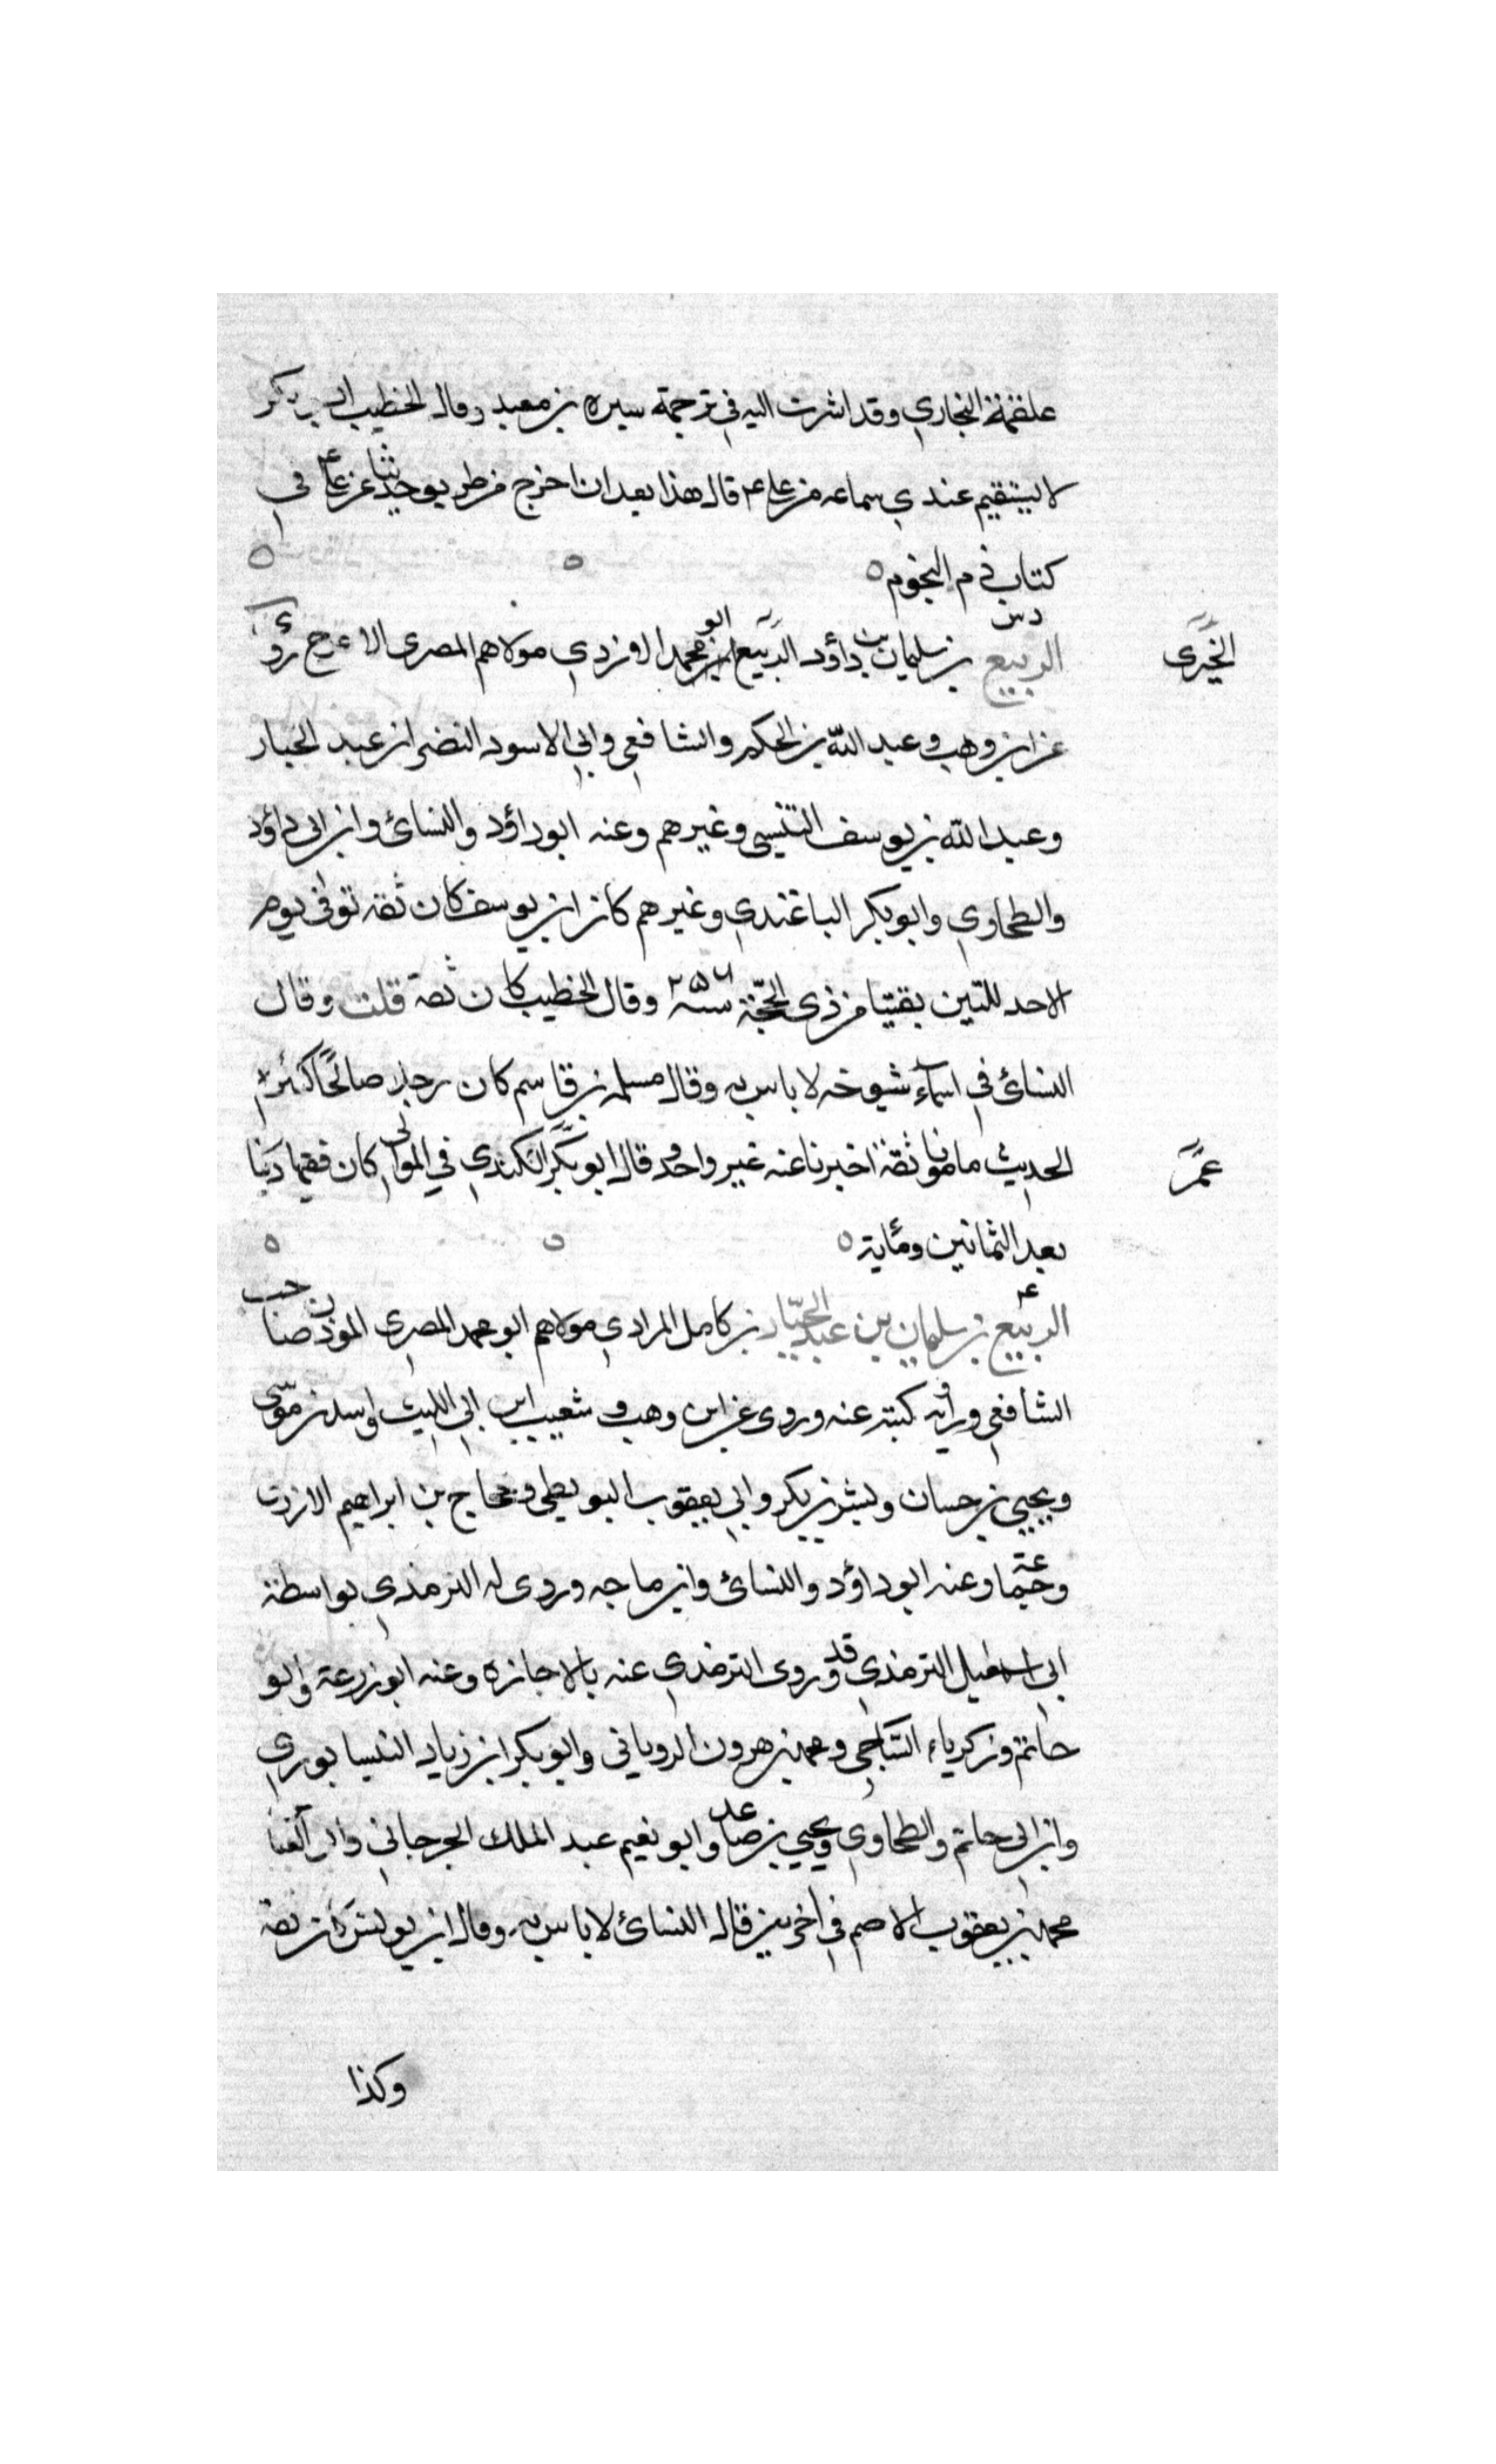 علقمة البخاري وقد اشرت اليه في ترجمة سبرة بن معبد وقال الخطيب ابو بكر
لا يستقيم عندي سماعه من علي ع قال هذا بعد ان اخرج من طريق حديثا عن علي ع في
كتاب ذم النجوم ه
دس
الجيزى
الربيع بن سليمان بن داؤد الربيع ابو محمد الازدي مولاهم المصرى الاعرج روى
عن ابن وهب وعبد الله بن الحكم والشافعي وابي الاسود النضر ابن عبد الجبار
وعبد الله بن يوسف التنيسي وغيرهم وعنه ابو داؤد والنسائ وابن ابى داؤد
والطحاوي وابو بكر الباغندي وغيرهم كان ابن يوسف كان ثقة توفى يوم
الاحد لليتين بقيتا من ذى الحجة سنة ٢٥٦ وقال الخطيب كان ثقة قلت وقال
النسائ في اسماء شيوخه لا باس به وقال مسلمه بن قاسم كان رجلا صالحا كثير
الحديث مامونا ثقة اخبرنا عنه غير واحد وقال ابو بكر الكندي في الموالى كان فقيها دينا
عمر
بعد الثمانين ومأية ه
ع
الربيع بن سليمان بن عبد الجبار بن كامل المرادي مولاهم ابو محمد المصري الموذن صاحب
الشافعي وراوية كتبه عنه وروى عن ابن وهب و شعيب ابن ابي الليث واسد بن موسى
ويحيى بن حسان وبشر بن بكر وابي يعقوب البويطي وحجاج بن ابراهيم الازرق
وجماعة وعنه ابو داؤد والنسائ وابن ماجه وروى له الترمذي بواسطة
ابي اسمعيل الترمذي وقد روى الترمذي عنه بالاجازه وعنه ابو زرعة وابو
حاتم وزكرياء الساجي ومحمد بن هرون الروياني وابو بكر ابن زياد النيسابوري
وابن ابى حاتم والطحاوي ويحيي بن صاعد وابو نعيم عبد الملك الجرجاني وابو العباس
محمد بن يعقوب الاصم في اخرين قال النسائ لا باس به وقال ابن يونس كان ثقة
وكذا